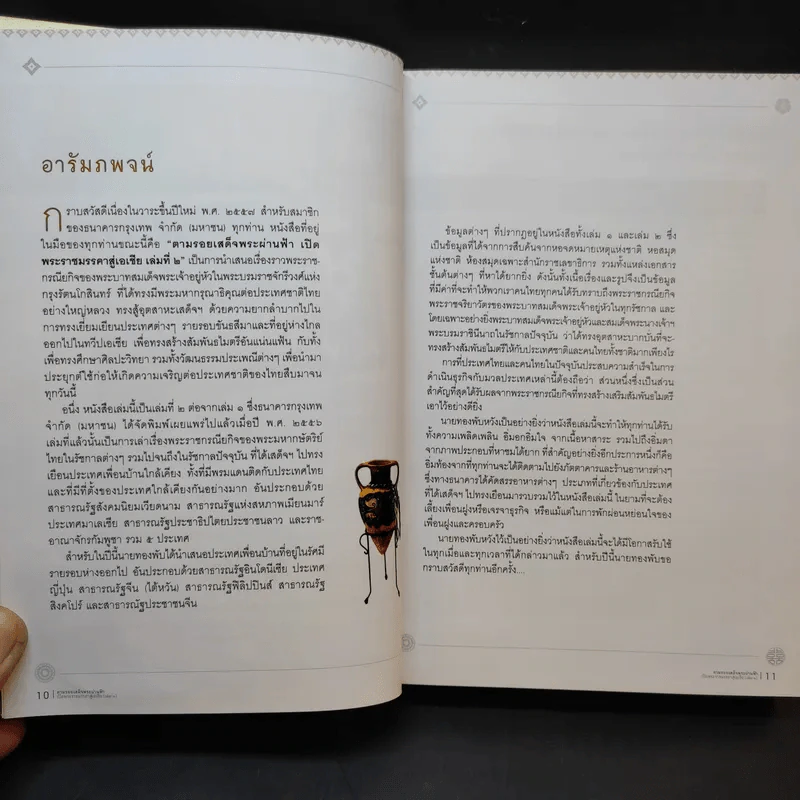 อารัมภพจน์
กราบสวัสดีเนื่องในวาระขึ้นปีใหม่ พ.ศ. ๒๕๕๗ สำหรับสมาชิก
ของธนาคารกรุงเทพ จำกัด (มหาชน) ทุกท่าน หนังสือที่อยู่
ในมือของทุกท่านขณะนี้คือ "ตามรอยเสด็จพระผ่านฟ้า เปิด
พระราชมรรคาสู่เอเชีย เล่มที่ ๒" เป็นการนำเสนอเรื่องราวพระราช-
กรณียกิจของพระบาทสมเด็จพระเจ้าอยู่หัวในพระบรมราชจักรีวงศ์แห่ง
กรุงรัตนโกสินทร์ ที่ได้ทรงมีพระมหากรุณาธิคุณต่อประเทศชาติไทย
อย่างใหญ่หลวง ทรงสู้อุตสาหะเสด็จฯ ด้วยความยากลำบากไปใน
การทรงเยี่ยมเยียนประเทศต่างๆ รายรอบขันธสีมาและที่อยู่ห่างไกล
ออกไปในทวีปเอเชีย เพื่อทรงสร้างสัมพันธไมตรีอันแน่นแฟ้น กับทั้ง
เพื่อทรงศึกษาศิลปะวิทยา รวมทั้งวัฒนธรรมประเพณีต่างๆ เพื่อนำมา
ประยุกต์ใช้ก่อให้เกิดความเจริญต่อประเทศชาติของไทยสืบมาจน
ทุกวันนี้
อนึ่ง หนังสือเล่มนี้เป็นเล่มที่ ๒ ต่อจากเล่ม ๑ ซึ่งธนาคารกรุงเทพ
จำกัด (มหาชน) ได้จัดพิมพ์เผยแพร่ไปแล้วเมื่อปี พ.ศ. ๒๕๕๖
เล่มที่แล้วนั้นเป็นการเล่าเรื่องพระราชกรณียกิจของพระมหากษัตริย์
ไทยในรัชกาลต่างๆ รวมไปจนถึงในรัชกาลปัจจุบัน ที่ได้เสด็จฯ ไปทรง
เยือนประเทศเพื่อนบ้านใกล้เคียง ทั้งที่มีพรมแดนติดกับประเทศไทย
และที่มีที่ตั้งของประเทศใกล้เคียงกันอย่างมาก อันประกอบด้วย
สาธารณรัฐสังคมนิยมเวียดนาม สาธารณรัฐแห่งสหภาพเมียนมาร์
ประเทศมาเลเซีย สาธารณรัฐประชาธิปไตยประชาชนลาว และราช-
อาณาจักรกัมพูชา รวม ๕ ประเทศ
สำหรับในปีนี้นายทองพับได้นำเสนอประเทศเพื่อนบ้านที่อยู่ในรัศมี
รายรอบห่างออกไป อันประกอบด้วยสาธารณรัฐอินโดนีเซีย ประเทศ
ญี่ปุ่น สาธารณรัฐจีน (ไต้หวัน) สาธารณรัฐฟิลิปปินส์ สาธารณรัฐ
สิงคโปร์ และสาธารณรัฐประชาชนจีน
10 | ตามรอยเสด็จพระผ่านฟ้า
ข้อมูลต่างๆ ที่ปรากฏอยู่ในหนังสือทั้งเล่ม ๑ และเล่ม ๒ ซึ่ง
เป็นข้อมูลที่ได้จากการสืบค้นจากหอจดหมายเหตุแห่งชาติ หอสมุด
แห่งชาติ ห้องสมุดเฉพาะสำนักราชเลขาธิการ รวมทั้งแหล่งเอกสาร
ชั้นต้นต่างๆ ที่หาได้ยากยิ่ง ดังนั้นทั้งเนื้อเรื่องและรูปจึงเป็นข้อมูล
ที่มีค่าที่จะทำให้พวกเราคนไทยทุกคนได้รับทราบถึงพระราชกรณียกิจ
พระราชจริยาวัตรของพระบาทสมเด็จพระเจ้าอยู่หัวในทุกรัชกาล และ
โดยเฉพาะอย่างยิ่งพระบาทสมเด็จพระเจ้าอยู่หัวและสมเด็จพระนางเจ้าฯ
พระบรมราชินีนาถในรัชกาลปัจจุบัน ว่าได้ทรงอุตสาหะบากบั่นที่จะ-
ทรงสร้างสัมพันธไมตรีให้กับประเทศชาติและคนไทยทั้งชาติมากเพียงไร
การที่ประเทศไทยและคนไทยในปัจจุบันประสบความสำเร็จในการ
ดำเนินธุรกิจกับมวลประเทศเหล่านี้ต้องถือว่า ส่วนหนึ่งซึ่งเป็นส่วน
สำคัญที่สุดได้รับผลจากพระราชกรณียกิจที่ทรงสร้างเสริมสัมพันธไมตรี
เอาไว้อย่างดียิ่ง
นายทองพับหวังเป็นอย่างยิ่งว่าหนังสือเล่มนี้จะทำให้ทุกท่านได้รับ
ทั้งความเพลิดเพลิน อิ่มอกอิ่มใจ จากเนื้อหาสาระ รวมไปถึงอิ่มตา
จากภาพประกอบที่หาชมได้ยาก ที่สำคัญอย่างยิ่งอีกประการหนึ่งก็คือ
อิ่มท้องจากที่ทุกท่านจะได้ติดตามไปยังภัตตาคารและร้านอาหารต่างๆ
ซึ่งทางธนาคารได้คัดสรรอาหารต่างๆ ประเภทที่เกี่ยวข้องกับประเทศ
ที่ได้เสด็จฯ ไปทรงเยือนมารวบรวมไว้ในหนังสือเล่มนี้ ในยามที่จะต้อง
เลี้ยงเพื่อนฝูงหรือเจรจาธุรกิจ หรือแม้แต่ในการพักผ่อนหย่อนใจของ
เพื่อนฝูงและครอบครัว
นายทองพับหวังไว้เป็นอย่างยิ่งว่าหนังสือเล่มนี้จะได้มีโอกาสรับใช้
ในทุกเมื่อและทุกเวลาที่ได้กล่าวมาแล้ว สำหรับปีนี้นายทองพับขอ
กราบสวัสดีทุกท่านอีกครั้ง....
ตามรอยเสด็จพระผ่านฟ้า | 11